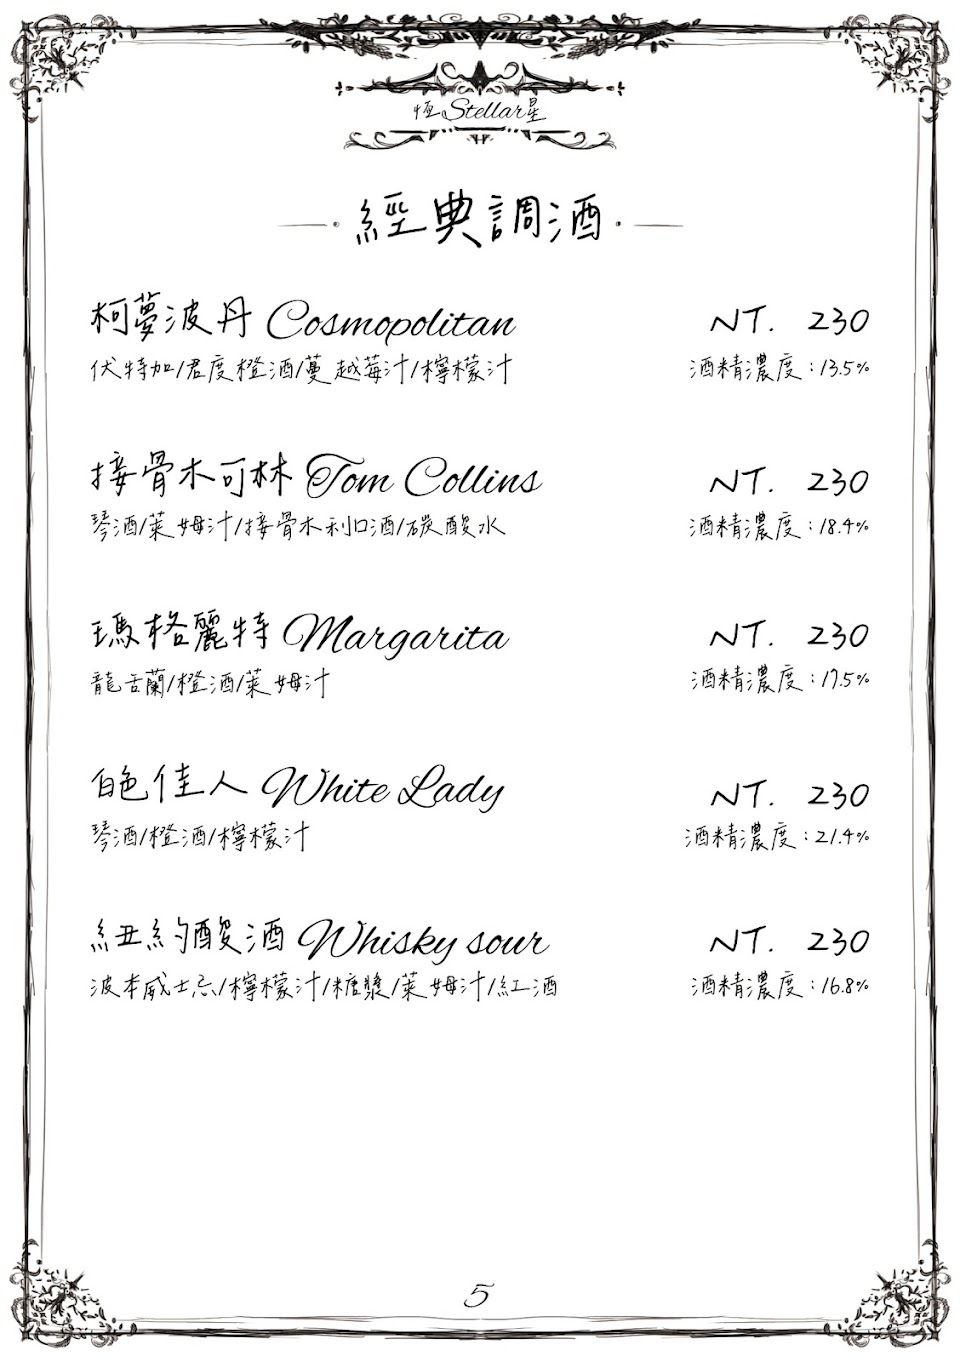 恆Stellar星
經典調酒
柯夢波丹 Cosmopolitan NT. 230
伏特加/君度橙酒/蔓越莓汁/檸檬汁 酒精濃度:13.5%
接骨木可林 Tom Collins NT. 230
琴酒/萊姆汁/接骨木利口酒/碳酸水 酒精濃度:18.4%
瑪格麗特 Margarita NT. 230
龍舌蘭/橙酒/萊姆汁 酒精濃度:17.5%
白色佳人 White Lady NT. 230
琴酒/橙酒/檸檬汁 酒精濃度:21.4%
紐約酸酒 Whisky sour NT. 230
波本威士忌/檸檬汁/糖漿/萊姆汁/紅酒 酒精濃度:16.8%
5